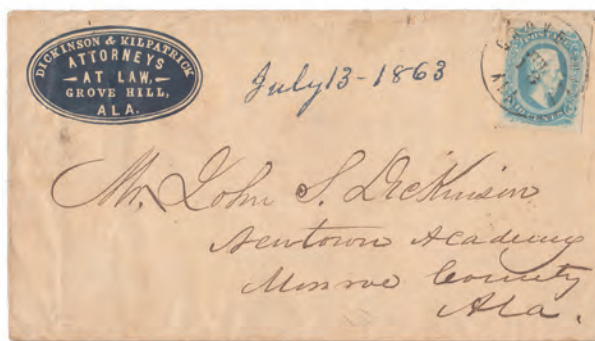 DICKINSON & KILPATRICK
ATTORNEYS
AT LAW,
GROVE HILL,
ALA.
July 13 - 1863
GROVE
POSTAGE
TEN CENTS
Mr. John S. Dickinson
Newtown Academy
Monroe County
Ala.